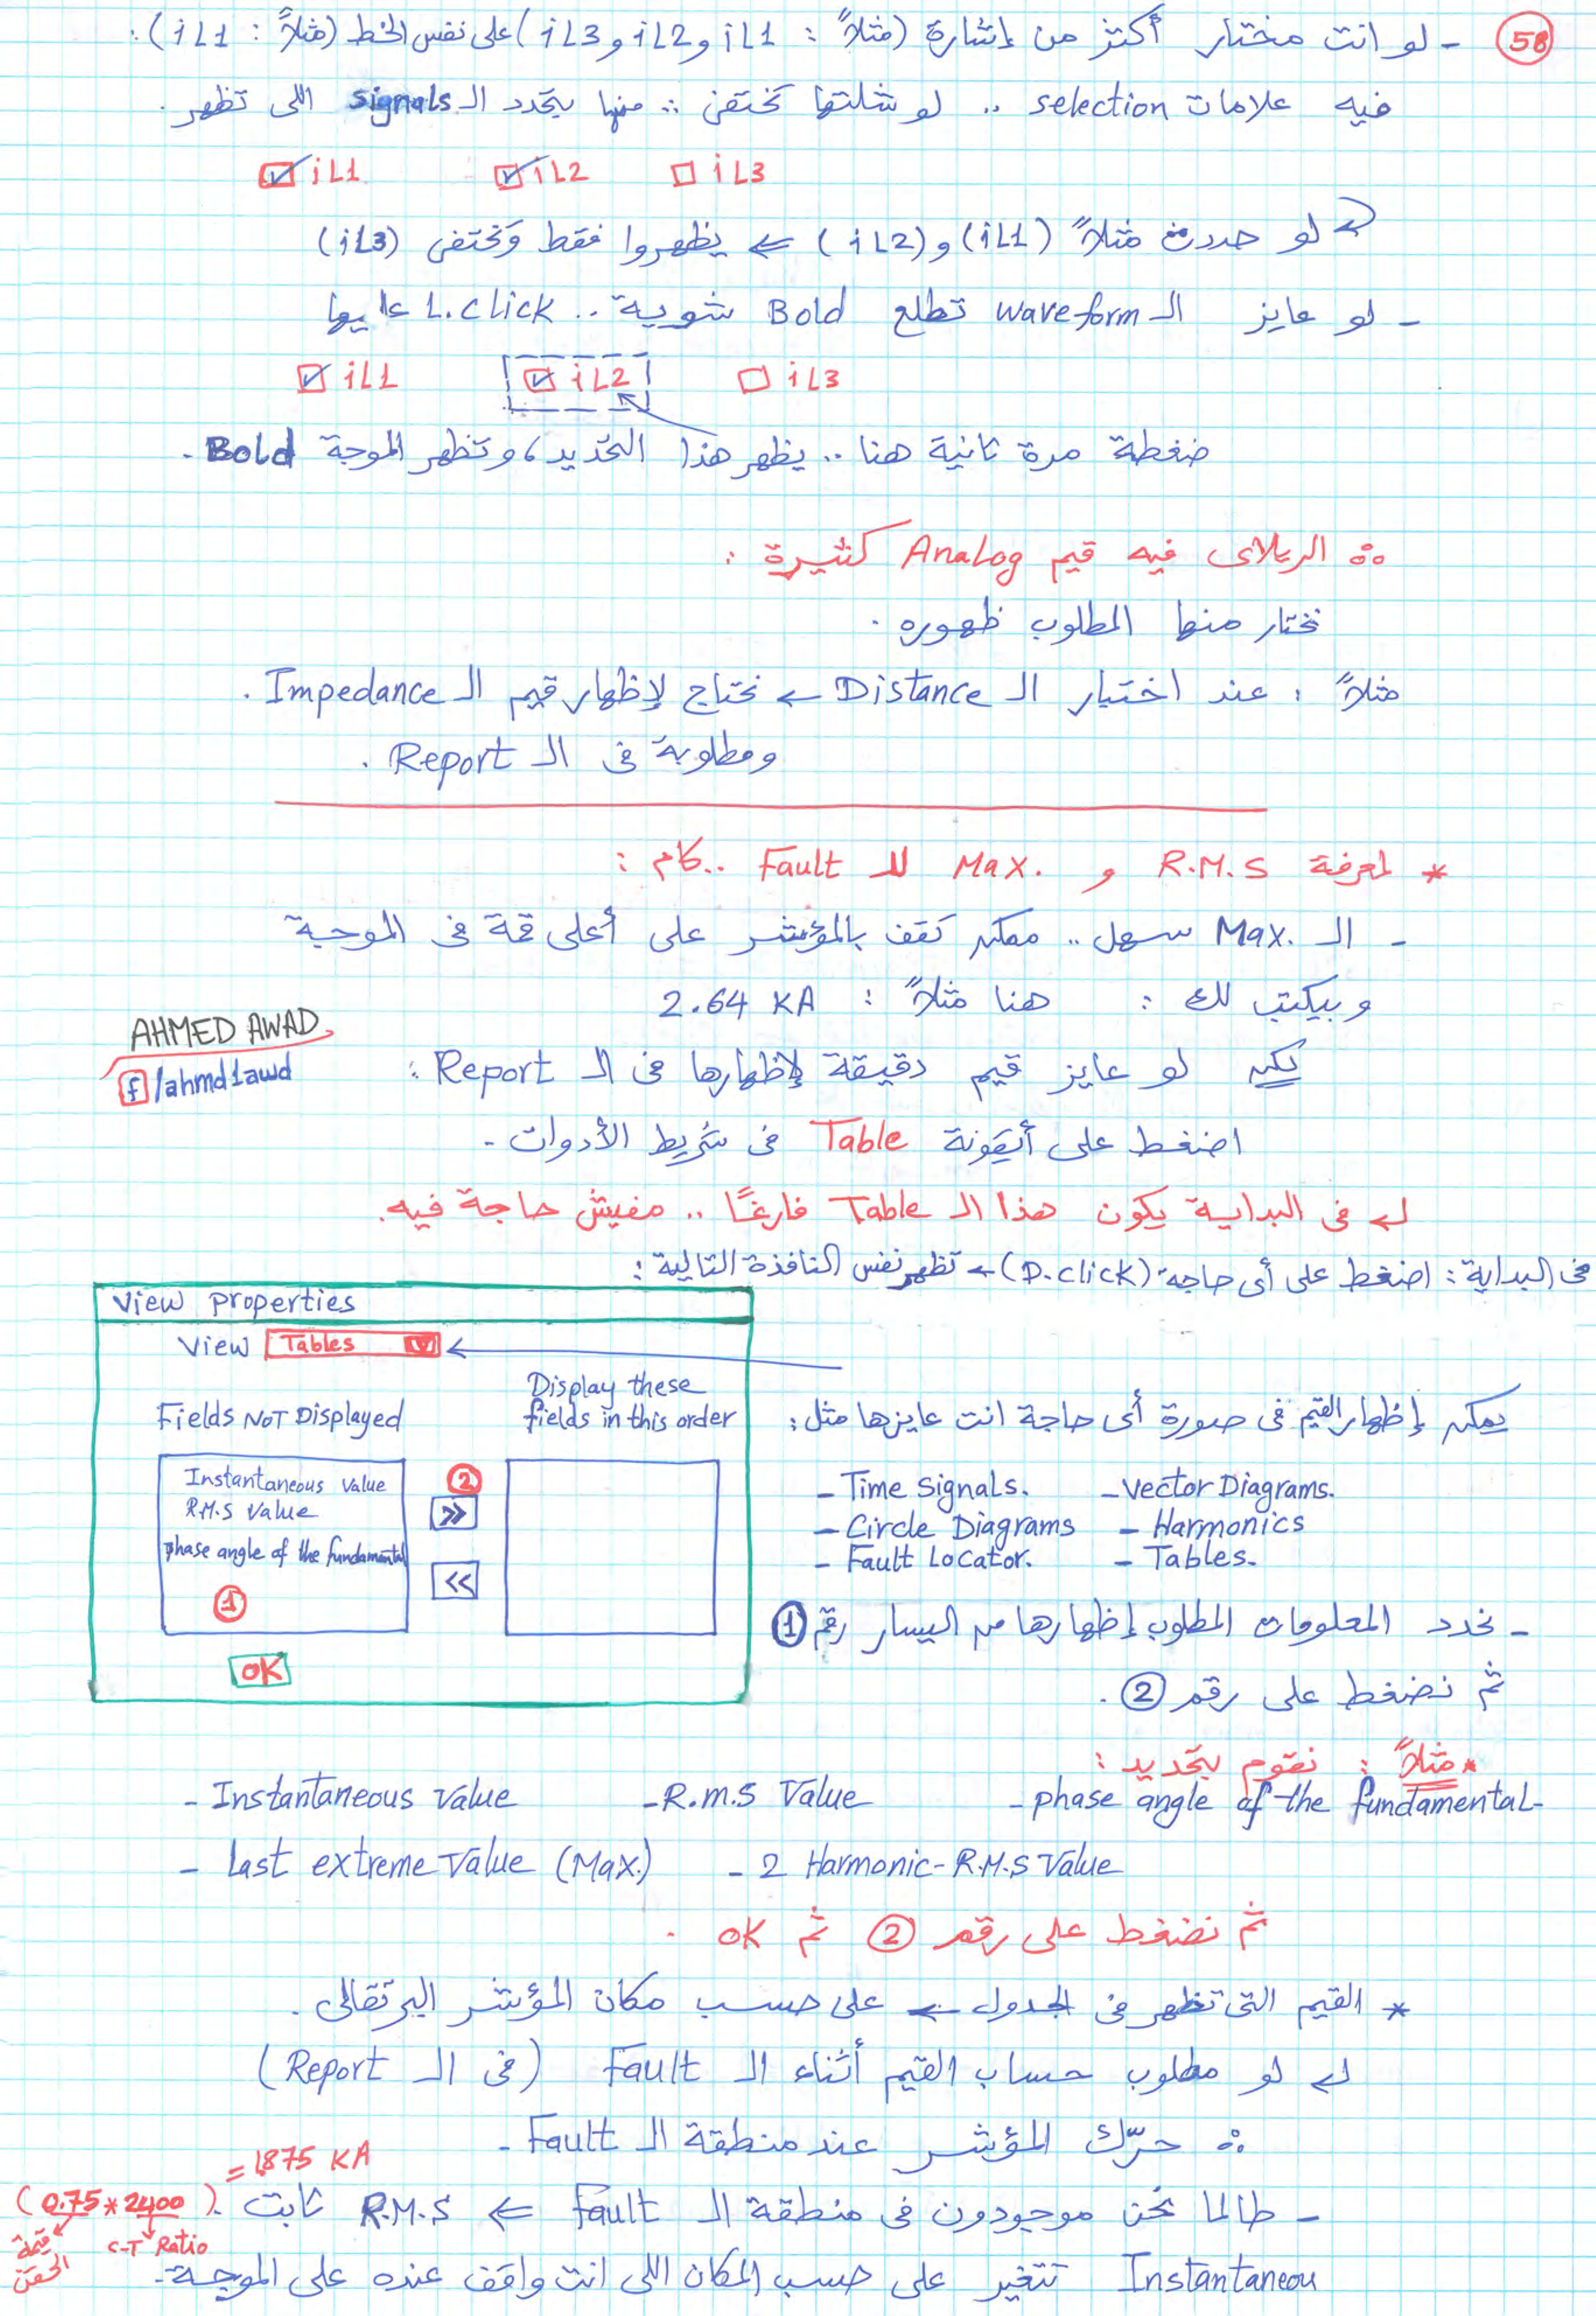 58
- لو انت مختار أكتر من إشارة (مثلاً : iL1 و iL2 و iL3) على نفس الخط (مثلاً : iL1) :
فيه علامات selection .. لو شلتها تختفى ∴ منها بتحدد الـ signals اللى تظهر .
iL1 iL2 iL3
لو حددت مثلاً (iL1) و (iL2) ⇐ يظهروا فقط وتختفى (iL3)
- لو عايز الـ waveform تطلع Bold شوية .. L.click عليها
iL1 iL2 iL3
ضغطة مرة تانية هنا .. يظهر هذا التحديد، وتظهر الموجة Bold .
∵ الريلاى فيه قيم Analog كتيرة :
نختار منها المطلوب ظهوره .
مثلاً : عند اختبار الـ Distance ← نحتاج لإظهار قيم الـ Impedance .
ومطلوبة فى الـ Report .
* لمعرفة R.M.S و Max. للـ Fault .. كام :
- الـ Max. سهل .. ممكن تقف بالمؤشر على أعلى قمة فى الموجة
وبيكتب لك : هنا مثلاً : 2.64 KA
AHMED AWAD
f /ahmd1awd
لكن لو عايز قيم دقيقة لإظهارها فى الـ Report :
اضغط على أيقونة Table فى شريط الأدوات -
↵ فى البداية يكون هذا الـ Table فارغًا .. مفيش حاجة فيه.
فى البداية : اضغط على أى حاجة (D.click) ← تظهر نفس النافذة التالية :
View properties
View Tables
Fields NOT Displayed
Display these
fields in this order
Instantaneous value
R.M.S value
phase angle of the fundamental
1
2
>>
<<
OK
يمكن إظهار القيم فى صورة أى حاجة انت عايزها مثل :
- Time Signals. - Vector Diagrams.
- Circle Diagrams - Harmonics
- Fault Locator. - Tables.
- نحدد المعلومات المطلوب إظهارها من اليسار رقم 1
ثم نضغط على رقم 2 .
* مثلاً : نقوم بتحديد :
- Instantaneous Value - R.m.S Value - phase angle of the fundamental-
- Last extreme Value (Max.) - 2 Harmonic-R.M.S Value
ثم نضغط على رقم 2 ثم OK .
* القيم التى تظهر فى الجدول ← على حسب مكان المؤشر البرتقالى .
↵ لو مطلوب حساب القيم أثناء الـ Fault (فى الـ Report)
∴ حرّك المؤشر عند منطقة الـ Fault -
- طالما نحن موجودون فى منطقة الـ Fault ⇐ R.M.S ثابت . (0.75 * 2400)
= 1875 KA
قيمة الحقن
C.T Ratio
Instantaneou تتغير على حسب المكان اللى انت واقف عنده على الموجة -